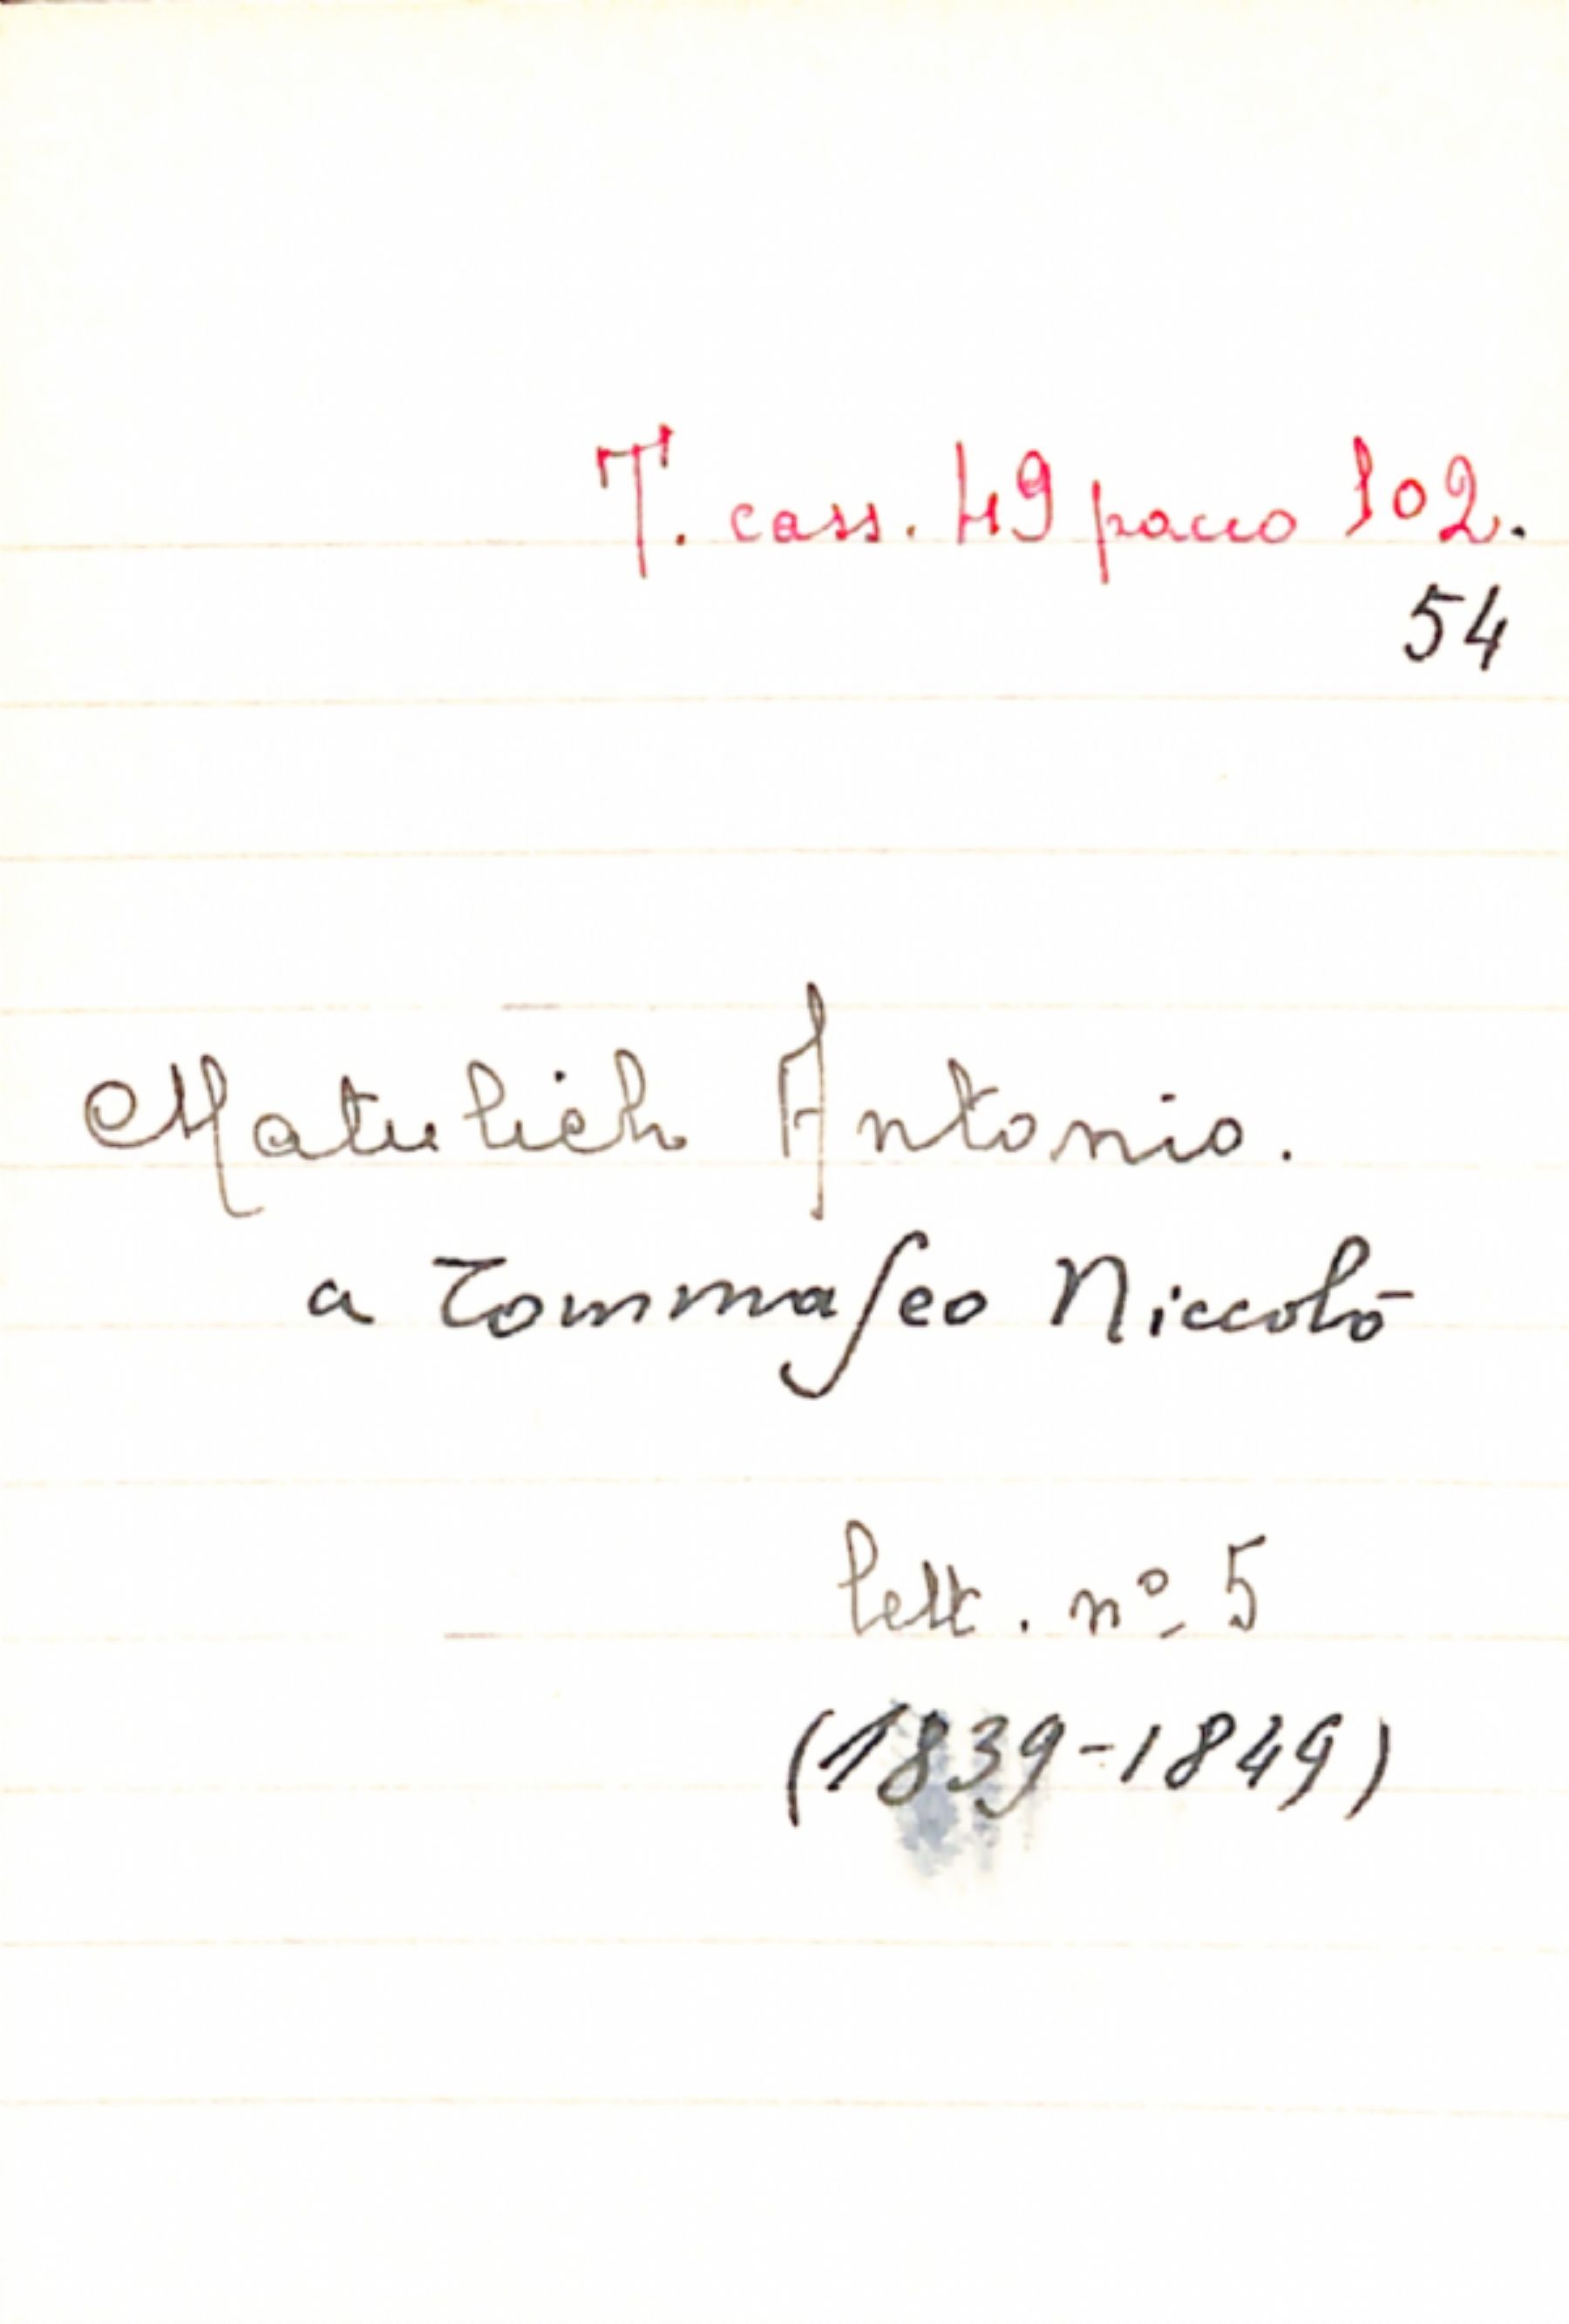 T. cass. 49 pacco 102.
54
Matulich Antonio.
a Tommaseo Niccolò
lett. nº 5
(1839-1849)